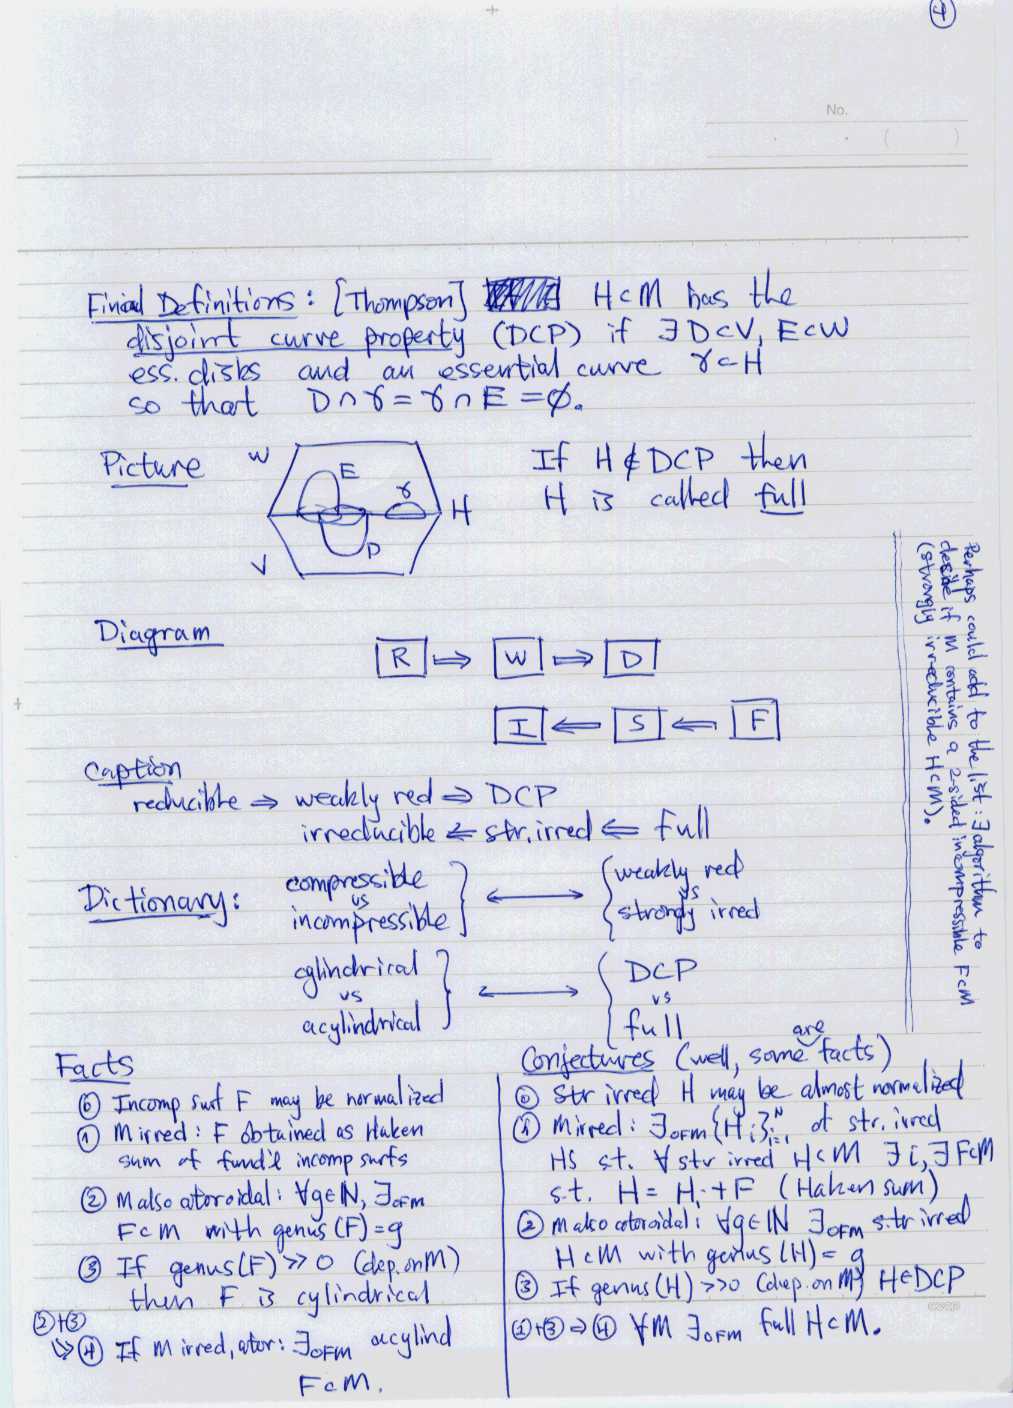 4
No.
Final Definitions: [Thompson] H⊂M has the
disjoint curve property (DCP) if ∃ D⊂V, E⊂W
ess. disks and an essential curve γ⊂H
so that D∩γ = γ∩E = ∅.
Picture
W
E
γ
H
D
V
If H ∉ DCP then
H is called full
Diagram
R ⇒ W ⇒ D
I ⇐ S ⇐ F
Caption
reducible ⇒ weakly red ⇒ DCP
irreducible ⇐ str. irred ⇐ full
Dictionary:
compressible
vs
incompressible
↔
weakly red
vs
strongly irred
cylindrical
vs
acylindrical
↔
DCP
vs
full
Perhaps could add to the list: ∃ algorithm to
decide if M contains a 2-sided incompressible F⊂M
(strongly irreducible H⊂M).
Facts
⓪ Incomp surf F may be normalized
① M irred: F obtained as Haken
sum of fund'l incomp surfs
② M also atoroidal: ∀g∈ℕ, ∃OFM
F⊂M with genus(F)=g
③ If genus(F) >> 0 (dep. on M)
then F is cylindrical
②+③
⇒ ④ If M irred, ator: ∃OFM acylind
F⊂M.
Conjectures (well, some are facts)
⓪ Str irred H may be almost normalized
① M irred: ∃OFM {Hi}ᴺi=1 of str. irred
HS st. ∀ str irred H⊂M ∃i, ∃F⊂M
s.t. H = Hi + F (Haken sum)
② M also atoroidal: ∀g∈ℕ ∃OFM str irred
H⊂M with genus(H) = g
③ If genus(H) >>0 (dep. on M) H∈DCP
②+③ ⇒ ④ ∀M ∃OFM full H⊂M.